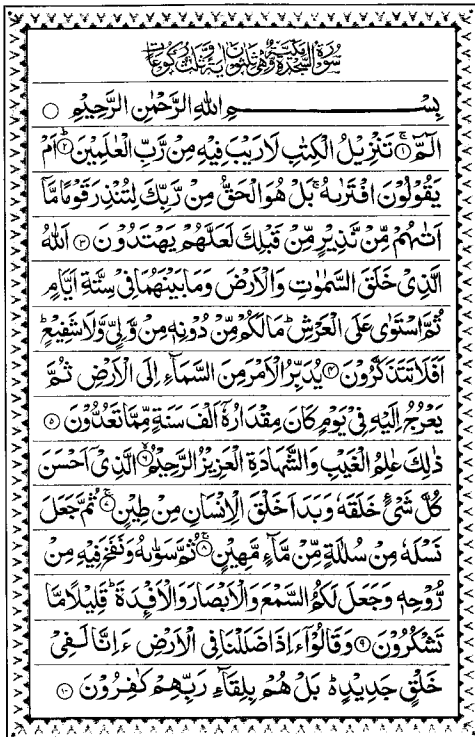 سُوْرَةُ السَّجْدَةِ مَكِّيَّةٌ وَّهِيَ ثَلٰثُوْنَ اٰيَةً وَّثَلٰثُ رُكُوْعَاتٍ
بِسْمِ اللهِ الرَّحْمٰنِ الرَّحِيْمِ ○
الٓمّٓ ۚ﴿۱﴾ تَنْزِيْلُ الْكِتٰبِ لَا رَيْبَ فِيْهِ مِنْ رَّبِّ الْعٰلَمِيْنَ ؕ﴿۲﴾ اَمْ
يَقُوْلُوْنَ افْتَرٰىهُ ۚ بَلْ هُوَ الْحَقُّ مِنْ رَّبِّكَ لِتُنْذِرَ قَوْمًا مَّاۤ
اَتٰىهُمْ مِّنْ نَّذِيْرٍ مِّنْ قَبْلِكَ لَعَلَّهُمْ يَهْتَدُوْنَ ﴿۳﴾ اَللهُ
الَّذِيْ خَلَقَ السَّمٰوٰتِ وَالْاَرْضَ وَمَا بَيْنَهُمَا فِيْ سِتَّةِ اَيَّامٍ
ثُمَّ اسْتَوٰى عَلَى الْعَرْشِ ؕ مَا لَكُمْ مِّنْ دُوْنِهٖ مِنْ وَّلِيٍّ وَّلَا شَفِيْعٍ ؕ
اَفَلَا تَتَذَكَّرُوْنَ ﴿۴﴾ يُدَبِّرُ الْاَمْرَ مِنَ السَّمَآءِ اِلَى الْاَرْضِ ثُمَّ
يَعْرُجُ اِلَيْهِ فِيْ يَوْمٍ كَانَ مِقْدَارُهٗۤ اَلْفَ سَنَةٍ مِّمَّا تَعُدُّوْنَ ﴿۵﴾
ذٰلِكَ عٰلِمُ الْغَيْبِ وَالشَّهَادَةِ الْعَزِيْزُ الرَّحِيْمُ ۙ﴿۶﴾ الَّذِيْۤ اَحْسَنَ
كُلَّ شَيْءٍ خَلَقَهٗ وَبَدَاَ خَلْقَ الْاِنْسَانِ مِنْ طِيْنٍ ۚ﴿۷﴾ ثُمَّ جَعَلَ
نَسْلَهٗ مِنْ سُلٰلَةٍ مِّنْ مَّآءٍ مَّهِيْنٍ ۚ﴿۸﴾ ثُمَّ سَوّٰىهُ وَنَفَخَ فِيْهِ مِنْ
رُّوْحِهٖ وَجَعَلَ لَكُمُ السَّمْعَ وَالْاَبْصَارَ وَالْاَفْـِٕدَةَ ؕ قَلِيْلًا مَّا
تَشْكُرُوْنَ ﴿۹﴾ وَقَالُوْۤا ءَاِذَا ضَلَلْنَا فِى الْاَرْضِ ءَاِنَّا لَفِيْ
خَلْقٍ جَدِيْدٍ ؕ بَلْ هُمْ بِلِقَآئِ رَبِّهِمْ كٰفِرُوْنَ ﴿۱۰﴾